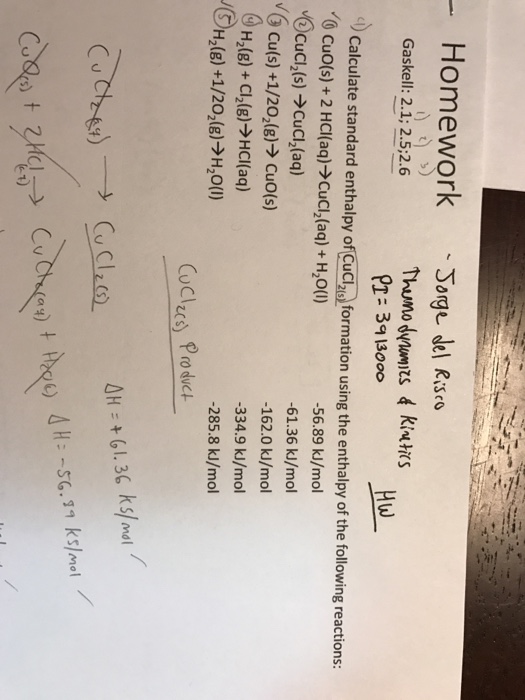 Homework
- Jorge del Risco
Thermodynamics & Kinetics HW
PI = 3913000
1) 2) 3)
Gaskell: 2.1; 2.5;2.6
4) Calculate standard enthalpy of CuCl₂(s) formation using the enthalpy of the following reactions:
√① CuO(s) + 2 HCl(aq)→CuCl₂(aq) + H₂O(l) -56.89 kJ/mol
√② CuCl₂(s) →CuCl₂(aq) -61.36 kJ/mol
√③ Cu(s) +1/2O₂(g)→ CuO(s) -162.0 kJ/mol
④ H₂(g) + Cl₂(g)→HCl(aq) -334.9 kJ/mol
√⑤ H₂(g) +1/2O₂(g)→H₂O(l) -285.8 kJ/mol
CuCl₂(s) Product
CuCl₂(aq) → CuCl₂(s) ΔH = +61.36 kJ/mol
CuO(s) + 2HCl(aq) → CuCl₂(aq) + H₂O(l) ΔH = -56.89 kJ/mol